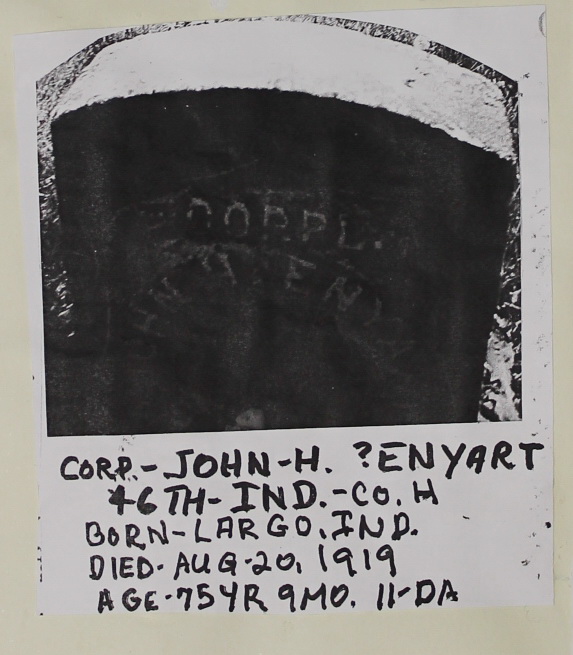 CORPL.
JOHN H. ENYART
CORP.-JOHN-H. ?ENYART
46TH-IND.-CO. H
BORN-LARGO, IND.
DIED-AUG-20, 1919
AGE-75YR 9MO. 11-DA